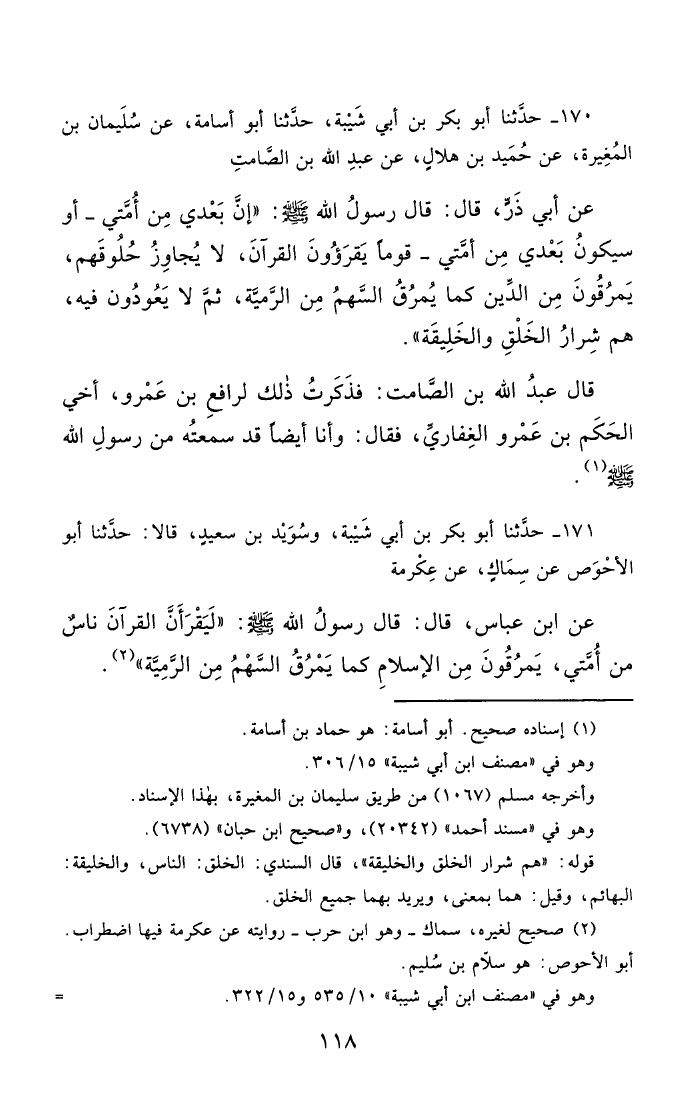 ١٧٠ـ حدَّثنا أبو بكر بن أبي شَيْبة، حدَّثنا أبو أسامة، عن سُلَيمان بن
المُغِيرة، عن حُمَيد بن هلالٍ، عن عبدِ الله بن الصَّامتِ
عن أبي ذَرٍّ، قال: قال رسولُ الله ﷺ: «إنَّ بَعْدي مِن أُمَّتي ـ أو
سيكونُ بَعْدي مِن أمَّتي ـ قوماً يَقرَؤُونَ القرآنَ، لا يُجاوِزُ حُلُوقَهم،
يَمرُقُونَ مِن الدِّين كما يُمرُقُ السَّهمُ مِن الرَّميَّة، ثمَّ لا يَعُودُون فيه،
هم شِرارُ الخَلْقِ والخَلِيقَة».
قال عبدُ الله بن الصَّامت: فذَكَرتُ ذٰلك لرافعِ بن عَمْرو، أخي
الحَكَم بن عَمْرو الغِفاريِّ، فقال: وأنا أيضاً قد سمعتُه من رسولِ الله
ﷺ(١).
١٧١ـ حدَّثنا أبو بكر بن أبي شَيْبة، وسُوَيْد بن سعيدٍ، قالا: حدَّثنا أبو
الأحْوَص عن سِمَاكٍ، عن عِكْرمة
عن ابن عباس، قال: قال رسولُ الله ﷺ: «لَيَقْرَأَنَّ القرآنَ ناسٌ
من أُمَّتي، يَمرُقُونَ مِن الإسلامِ كما يَمْرُقُ السَّهْمُ مِن الرَّمِيَّة»(٢).
(١) إسناده صحيح. أبو أسامة: هو حماد بن أسامة.
وهو في «مصنف ابن أبي شيبة» ١٥/ ٣٠٦.
وأخرجه مسلم (١٠٦٧) من طريق سليمان بن المغيرة، بهٰذا الإسناد.
وهو في «مسند أحمد» (٢٠٣٤٢)، و«صحيح ابن حبان» (٦٧٣٨).
قوله: «هم شرار الخلق والخليقة»، قال السندي: الخلق: الناس، والخليقة:
البهائم، وقيل: هما بمعنى، ويريد بهما جميع الخلق.
(٢) صحيح لغيره، سماك ـ وهو ابن حرب ـ روايته عن عكرمة فيها اضطراب.
أبو الأحوص: هو سلّام بن سُليم.
وهو في «مصنف ابن أبي شيبة» ١٠/ ٥٣٥ و١٥/ ٣٢٢. =
١١٨